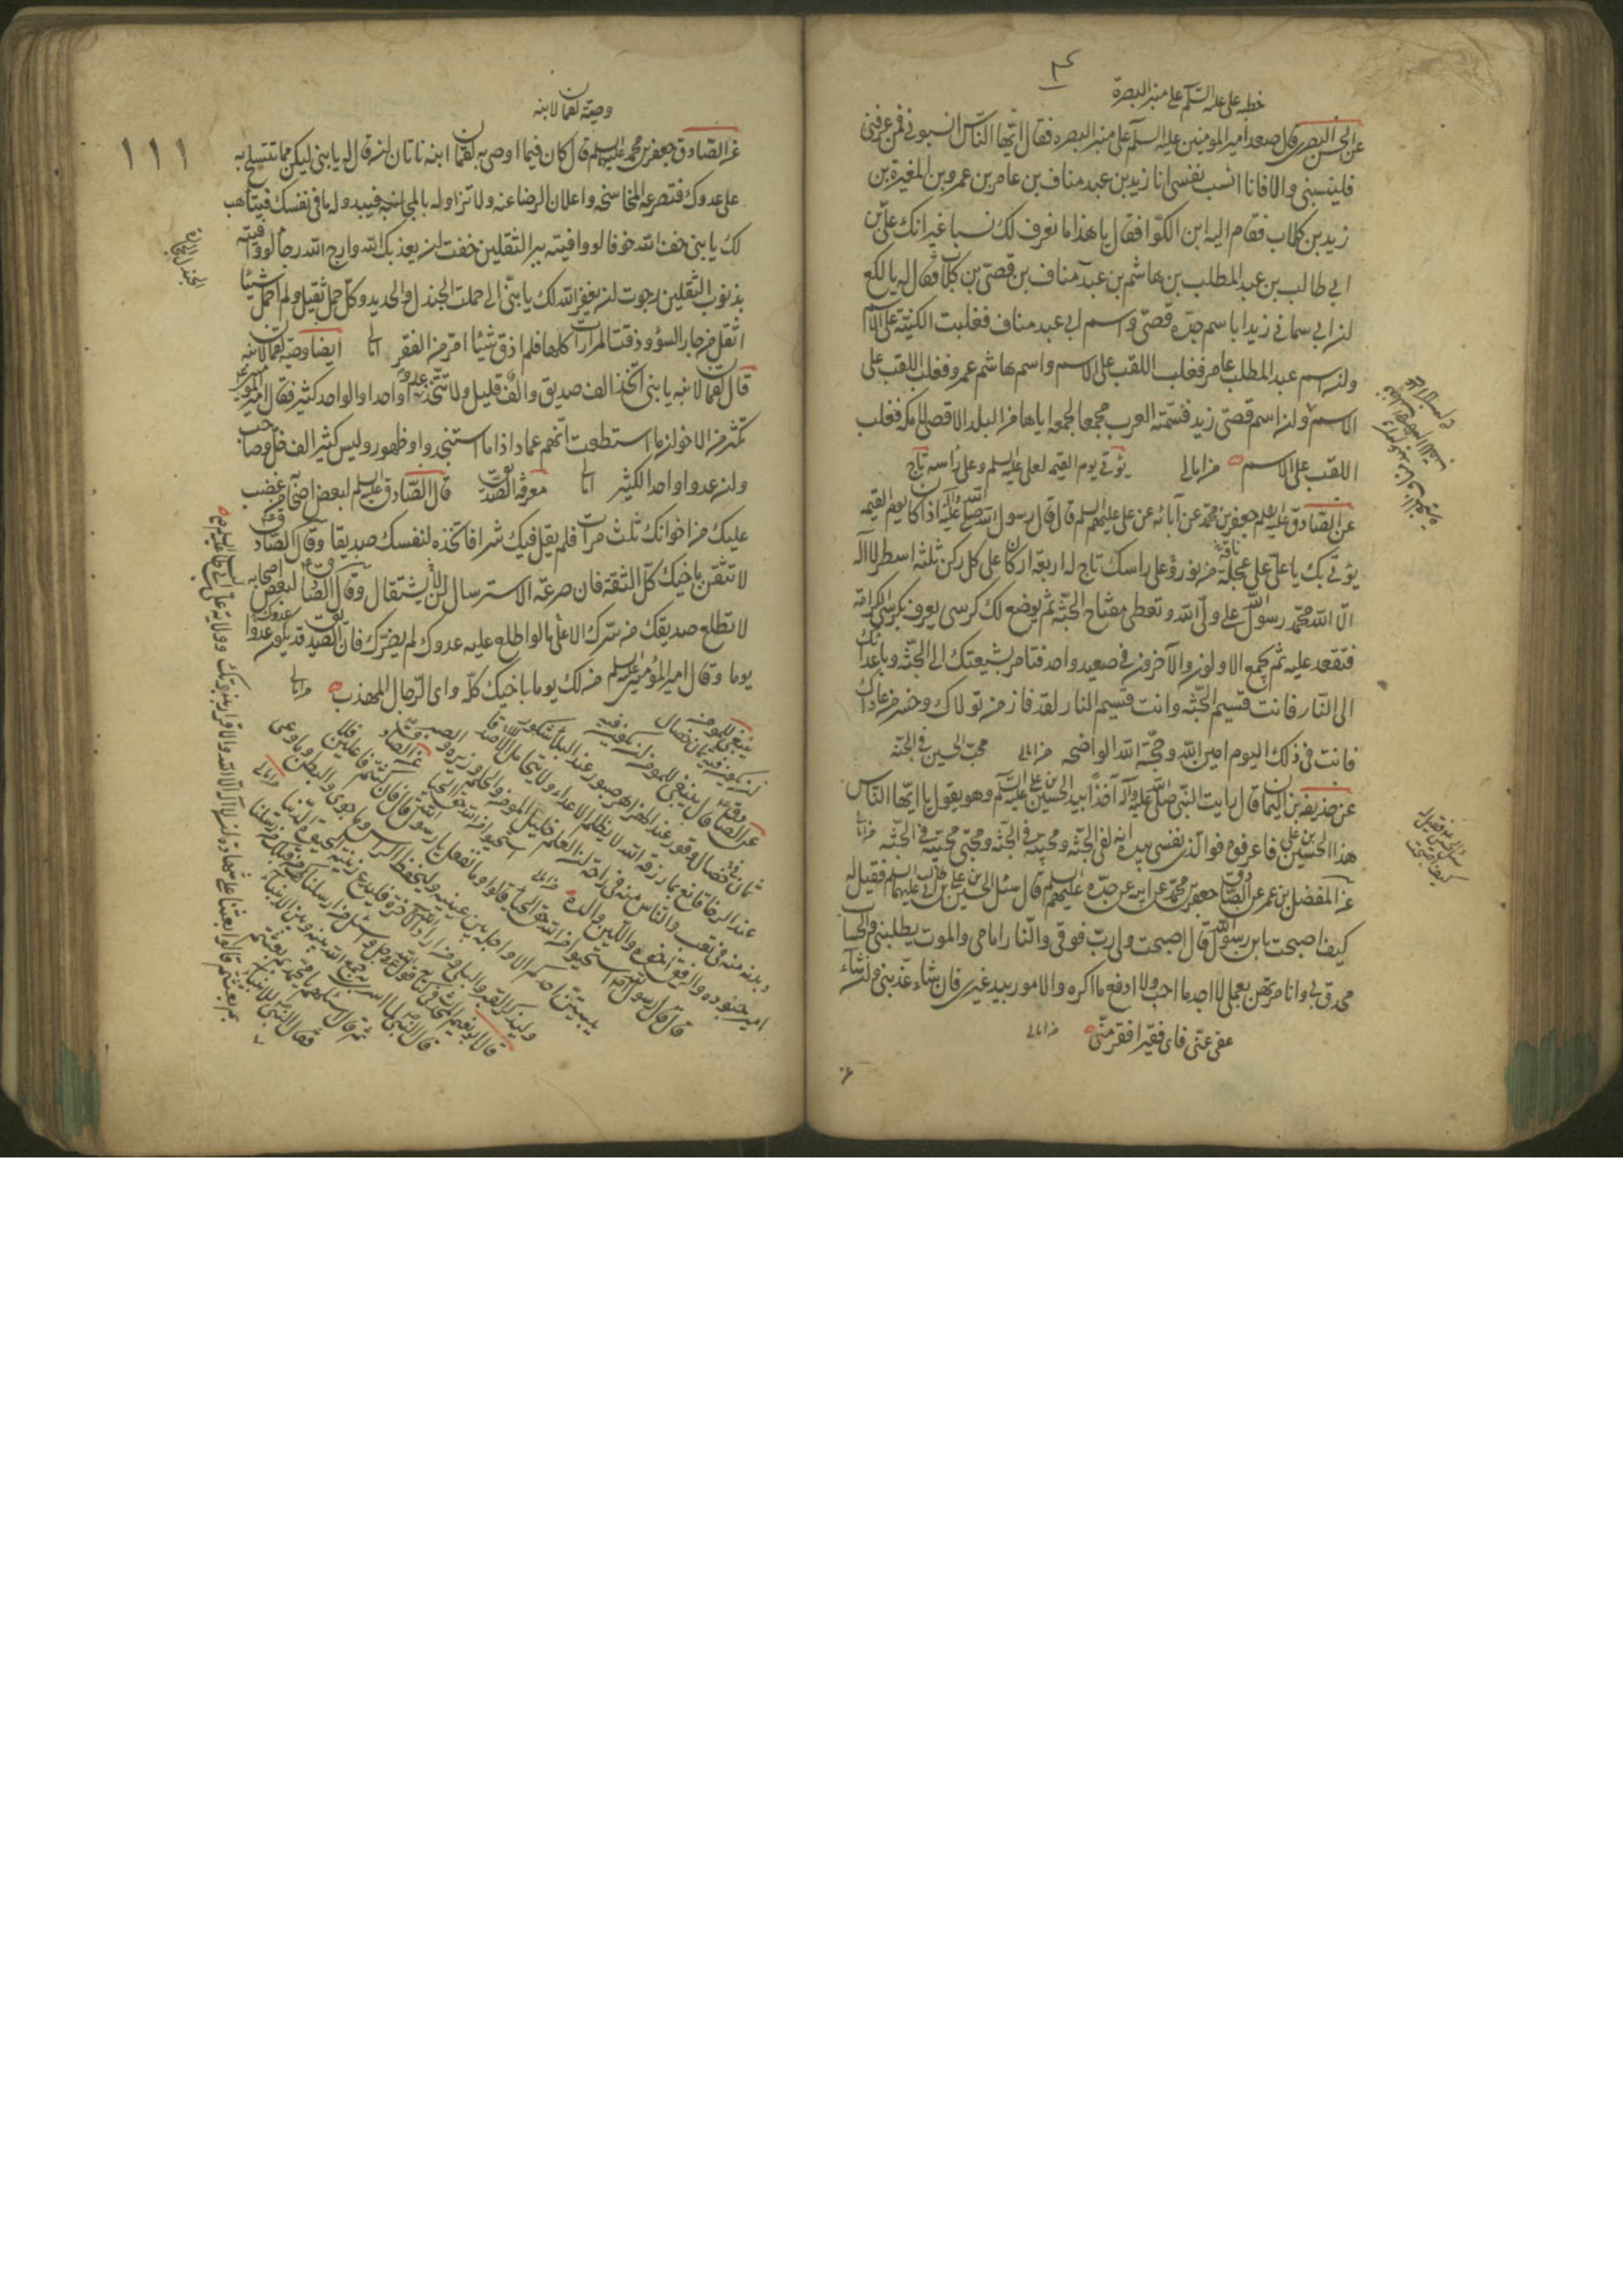 خطبه على عليه السلم على منبر البصرة
عن الحسن البصرى قال صعد امير المومنين عليه السلم على منبر البصره فقال ايها الناس انسبونى فمن عرفنى
فلينسبنى والا فانا انسب نفسى انا زيد بن عبد مناف بن عامر بن عمرو بن المغيرة بن
زيد بن كلاب فقام اليه ابن الكوا فقال يا هذا ما نعرف لك نسبا غير انك على بن
ابى طالب بن عبد المطلب بن هاشم بن عبد مناف بن قصى بن كلاب فقال له يا لكع
ان ابى سمانى زيدا باسم جده قصى واسم ابى عبد مناف فغلبت الكنية على الاسم
وان اسم عبد المطلب عامر فغلب اللقب على الاسم واسم هاشم عمرو فغلب اللقب على
الاسم وان اسم قصى زيد فسمته العرب مجمعا لجمعه اياها من البلد الاقصى الى مكه فغلب
اللقب على الاسم من امالى يؤتى يوم القيمه لعلى عليه السلم وعلى راسه تاج
عن الصادق عليه السلم جعفر بن محمد عن آبائه عن على عليهم السلم قال قال رسول الله صلى الله عليه واله اذا كان يوم القيمه
يؤتى بك يا على على عجلة من نور وعلى راسك تاج له اربعة اركان على كل ركن ثلثه اسطر لا اله
الا الله محمد رسول الله على ولى الله وتعطى مفتاح الجنة ثم يوضع لك كرسى يعرف بكرسى الكرامة
فتقعد عليه ثم يجمع الاولون والآخرون فى صعيد واحد فتامر بشيعتك الى الجنة وباعدائك
الى النار فانت قسيم الجنة وانت قسيم النار لقد فاز من تولاك وخسر من عاداك
فانت فى ذلك اليوم امين الله وحجة الله الواضحه من امالى محب الحسين فى الجنة
عن حذيفة بن اليمان قال رايت النبى صلى الله عليه وآله آخذا بيد الحسين بن على عليه السلم وهو يقول يا ايها الناس
هذا الحسين بن على فاعرفوه فو الذى نفسى بيده انه لفى الجنة ومحبيه فى الجنة ومحبى محبيه فى الجنة من امالى
عن المفضل بن عمر عن الصادق جعفر بن محمد عن ابيه عن جده عليهم السلم قال سئل الحسين بن على بن ابى طالب عليهما السلم فقيل له
كيف اصبحت يا بن رسول الله قال اصبحت ولى رب فوقى والنار امامى والموت يطلبنى والحساب
محدق بى وانا مرتهن بعملى لا اجد ما احب ولا ادفع ما اكره والامور بيد غيرى فان شاء عذبنى وان شاء
عفى عنى فاى فقير افقر منى من امالى
١١١
وصية لقمان لابنه
عن الصادق جعفر بن محمد عليه السلم قال كان فيما اوصى به لقمان ابنه ناتان ان قال له يا بنى ليكن مما تتسلح به
على عدوك فتصرعه المماسحة واعلان الرضا عنه ولا تزاوله بالمجانبة فيبدو له ما فى نفسك فيتاهب
لك يا بنى خف الله خوفا لو وافيته ببر الثقلين خفت ان يعذبك الله وارج الله رجاء لو وافيته
بذنوب الثقلين رجوت ان يغفر الله لك يا بنى انى حملت الجندل والحديد وكل حمل ثقيل ولم احمل شيئا
اثقل من جار السوء وذقت المرارات كلها فلم اذق شيئا امر من الفقر امالى ايضا وصية لقمان لابنه
قال لقمان لابنه يا بنى اتخذ الف صديق والف قليل ولا تتخذ عدوا واحدا والواحد كثير فقال امير المومنين
تكثر من الاخوان ما استطعت انهم عماد اذا ما استنجدوا وظهور وليس كثيرا الف خل وصاحب
وان عدوا واحدا لكثير امالى معرفة الصديق قال الصادق عليه السلم لبعض اصحابه من غضب
عليك من اخوانك ثلث مرات فلم يقل فيك شرا فاتخذه لنفسك صديقا وقال الصادق
لا تثقن باخيك كل الثقة فان صرعة الاسترسال لن يستقال وقال الصادق لبعض اصحابه
لا تطلع صديقك من سرك الا على ما لو اطلع عليه عدوك لم يضرك فان الصديق قد يكون عدوك
يوما وقال امير المؤمنين عليه السلم من لك يوما باخيك كله واى الرجال المهذب من امالى
ينبغى للمومن
ان يكون فيه ثمان خصال
عن الصادق قال ينبغى للمومن ان يكون فيه
ثمان خصال وقور عند الهزاهز صبور عند البلاء شكور
عند الرخا قانع بما رزقه الله لا يظلم الاعداء ولا يتحامل للاصدقا
بدنه منه فى تعب والناس منه فى راحة ان العلم خليل المومن والحلم وزيره والصبر
امير جنوده والرفق اخوه واللين والده من امالى
قال قال رسول الله استحيوا من الله حق الحيا قالوا وما نفعل يا رسول الله قال فان كنتم فاعلين فلا
يبيتن احدكم الا واجله بين عينيه وليحفظ الراس وما حوى والبطن وما وعى
وليذكر القبر والبلى ومن اراد الآخرة فليدع زينة الحيوة الدنيا من امالى